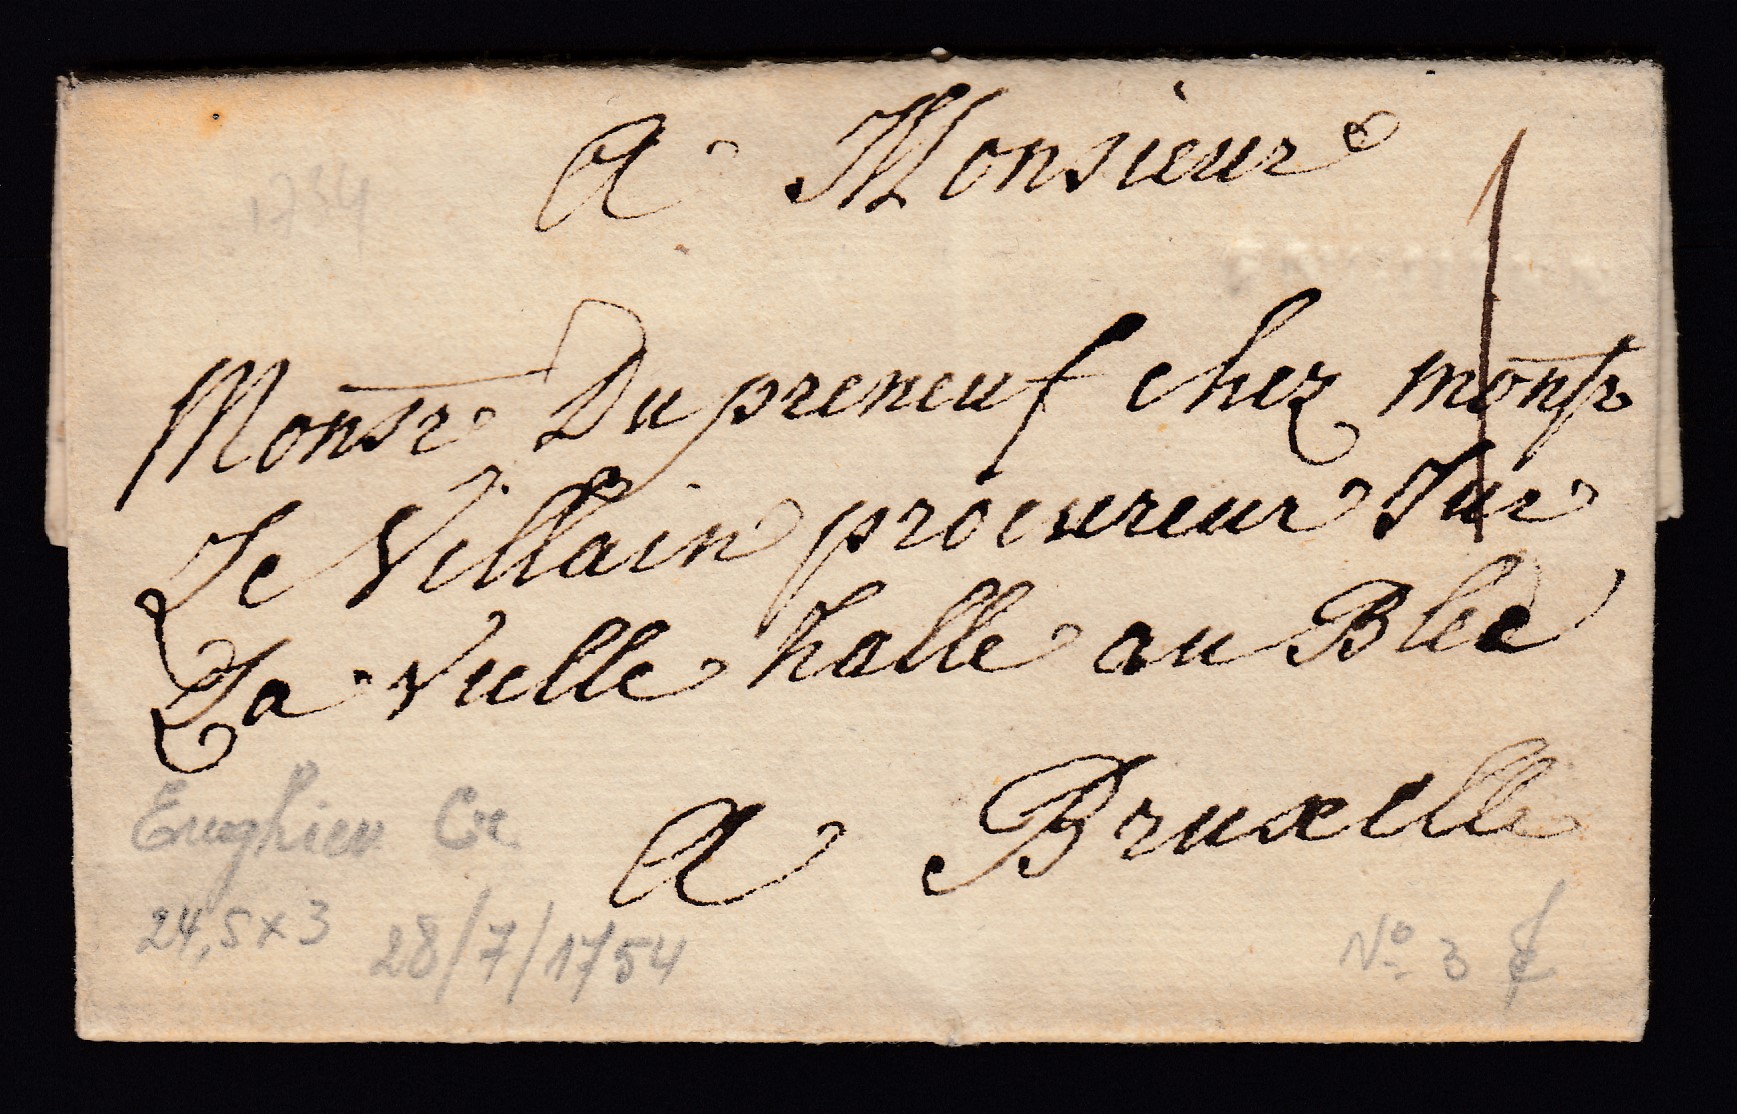 A Monsieur
1734
Monsr Dupreneuf chez monsr
Le Villain procureur Sur
La vielle halle au Bled
A Bruxelle
Enghien Ce
24,5 x 3 28/7/1754
No 3